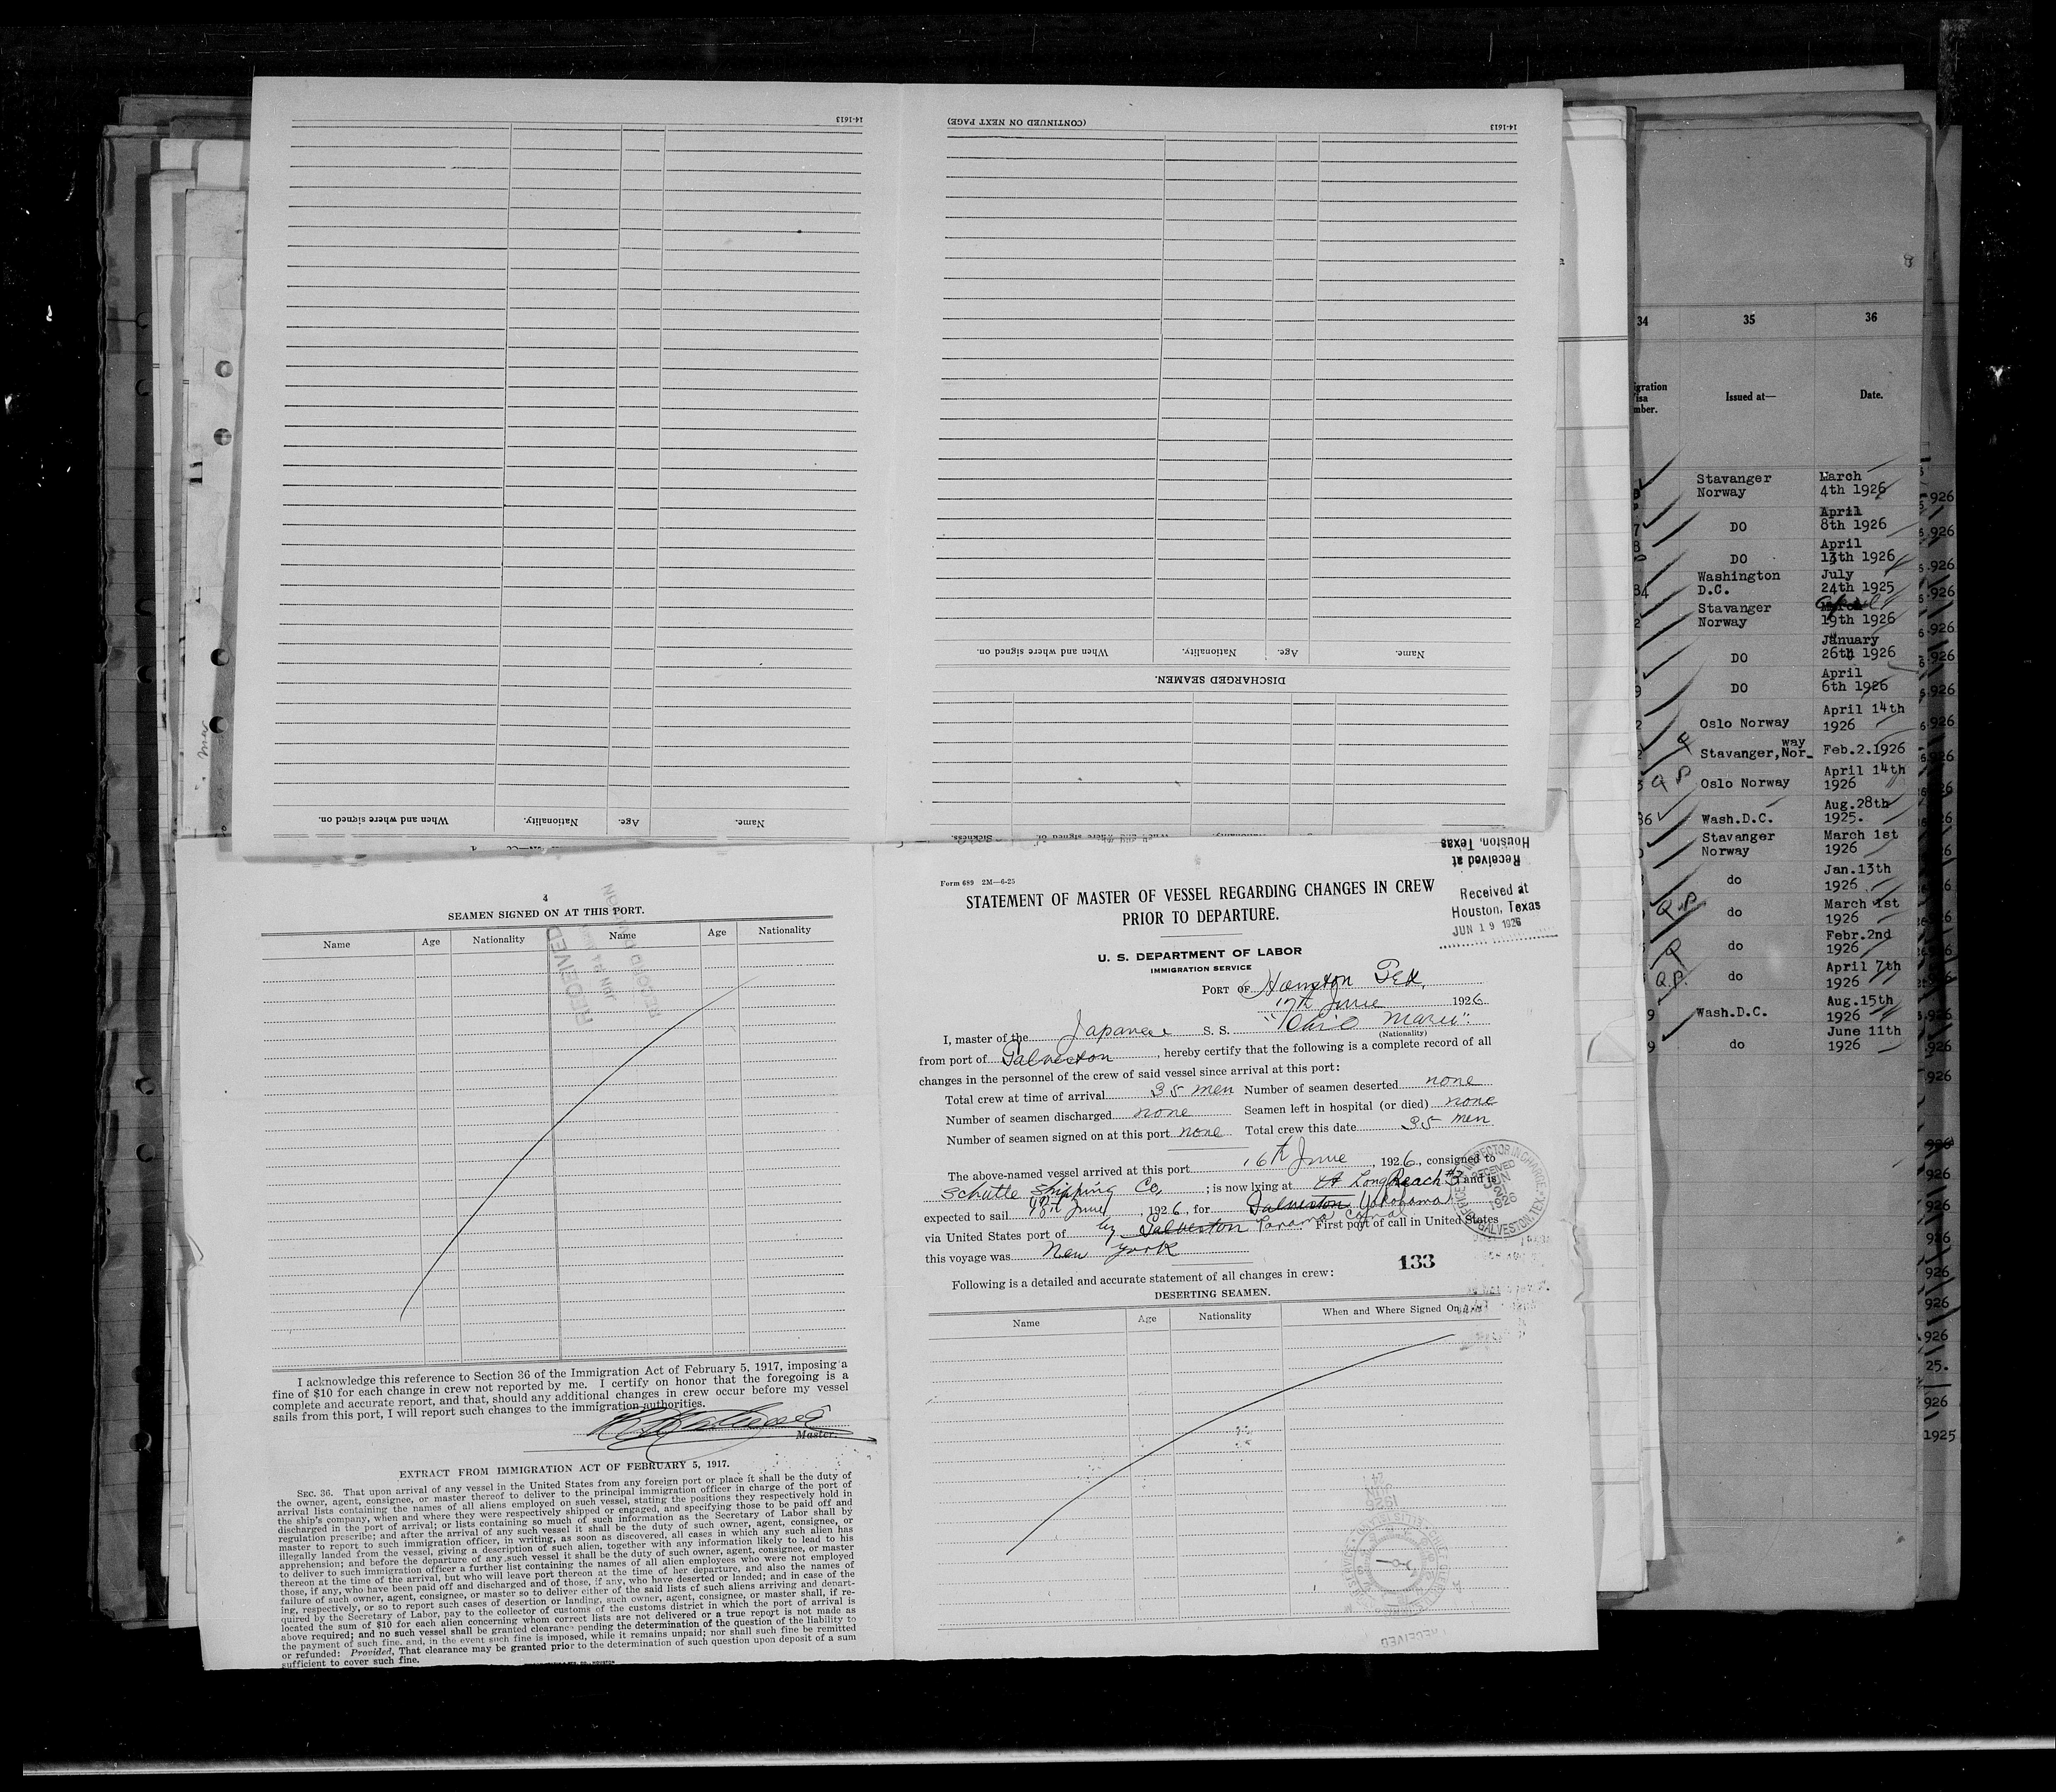 14-1613
(CONTINUED ON NEXT PAGE)
14-1613
When and where signed on.
Nationality.
Age.
Name.
DISCHARGED SEAMEN.
When and where signed on.
Nationality.
Age.
Name.
Sickness.
When and where signed on.
4
SEAMEN SIGNED ON AT THIS PORT.
Name Age Nationality Name Age Nationality
RECEIVED
RECORD DIVISION
I acknowledge this reference to Section 36 of the Immigration Act of February 5, 1917, imposing a
fine of $10 for each change in crew not reported by me. I certify on honor that the foregoing is a
complete and accurate report, and that, should any additional changes in crew occur before my vessel
sails from this port, I will report such changes to the immigration authorities.
Master.
EXTRACT FROM IMMIGRATION ACT OF FEBRUARY 5, 1917.
SEC. 36. That upon arrival of any vessel in the United States from any foreign port or place it shall be the duty of
the owner, agent, consignee, or master thereof to deliver to the principal immigration officer in charge of the port of
arrival lists containing the names of all aliens employed on such vessel, stating the positions they respectively hold in
the ship's company, when and where they were respectively shipped or engaged, and specifying those to be paid off and
discharged in the port of arrival; or lists containing so much of such information as the Secretary of Labor shall by
regulation prescribe; and after the arrival of any such vessel it shall be the duty of such owner, agent, consignee, or
master to report to such immigration officer, in writing, as soon as discovered, all cases in which any such alien has
illegally landed from the vessel, giving a description of such alien, together with any information likely to lead to his
apprehension; and before the departure of any such vessel it shall be the duty of such owner, agent, consignee, or master
to deliver to such immigration officer a further list containing the names of all alien employees who were not employed
thereon at the time of the arrival, but who will leave port thereon at the time of her departure, and also the names of
those, if any, who have been paid off and discharged and of those, if any, who have deserted or landed; and in case of the
failure of such owner, agent, consignee, or master so to deliver either of the said lists of such aliens arriving and depart-
ing, respectively, or so to report such cases of desertion or landing, such owner, agent, consignee, or master shall, if re-
quired by the Secretary of Labor, pay to the collector of customs of the customs district in which the port of arrival is
located the sum of $10 for each alien concerning whom correct lists are not delivered or a true report is not made as
above required; and no such vessel shall be granted clearance pending the determination of the question of the liability to
the payment of such fine, and, in the event such fine is imposed, while it remains unpaid; nor shall such fine be remitted
or refunded: Provided, That clearance may be granted prior to the determination of such question upon deposit of a sum
sufficient to cover such fine.
Received at
Houston, Texas
Form 689 2M—6-25
STATEMENT OF MASTER OF VESSEL REGARDING CHANGES IN CREW
PRIOR TO DEPARTURE.
Received at
Houston, Texas
JUN 19 1926
U. S. DEPARTMENT OF LABOR
IMMIGRATION SERVICE
PORT OF Houston Tex.
17th June 1926
I, master of the Japanese S. S. "Ohio Maru"
(Nationality)
from port of Galveston, hereby certify that the following is a complete record of all
changes in the personnel of the crew of said vessel since arrival at this port:
Total crew at time of arrival 35 men Number of seamen deserted none
Number of seamen discharged none Seamen left in hospital (or died) none
Number of seamen signed on at this port none Total crew this date 35 men
The above-named vessel arrived at this port 16th June, 1926, consigned to
Schutte Shipping Co.; is now lying at At Long Reach #3 and is
expected to sail 18th June, 1926, for Galveston Yokohama
via United States port of by Galveston Panama Canal First port of call in United States
this voyage was New York
133
INSPECTOR IN CHARGE
RECEIVED
JUN 21 1926
GALVESTON, TEX.
Following is a detailed and accurate statement of all changes in crew:
DESERTING SEAMEN.
Name Age Nationality When and Where Signed On
24
JUN
1926
RECEIVED
34 35 36
Issued at— Date.
Stavanger Norway March 4th 1926
DO April 8th 1926
DO April 13th 1926
Washington D.C. July 24th 1925
Stavanger Norway March April 19th 1926
DO January 26th 1926
DO April 6th 1926
Oslo Norway April 14th 1926
Stavanger, Norway Feb.2.1926
Oslo Norway April 14th 1926
Wash.D.C. Aug.28th 1925.
Stavanger Norway March 1st 1926
do Jan.13th 1926
do March 1st 1926
do Febr.2nd 1926
do April 7th 1926
Wash.D.C. Aug.15th 1926
do June 11th 1926